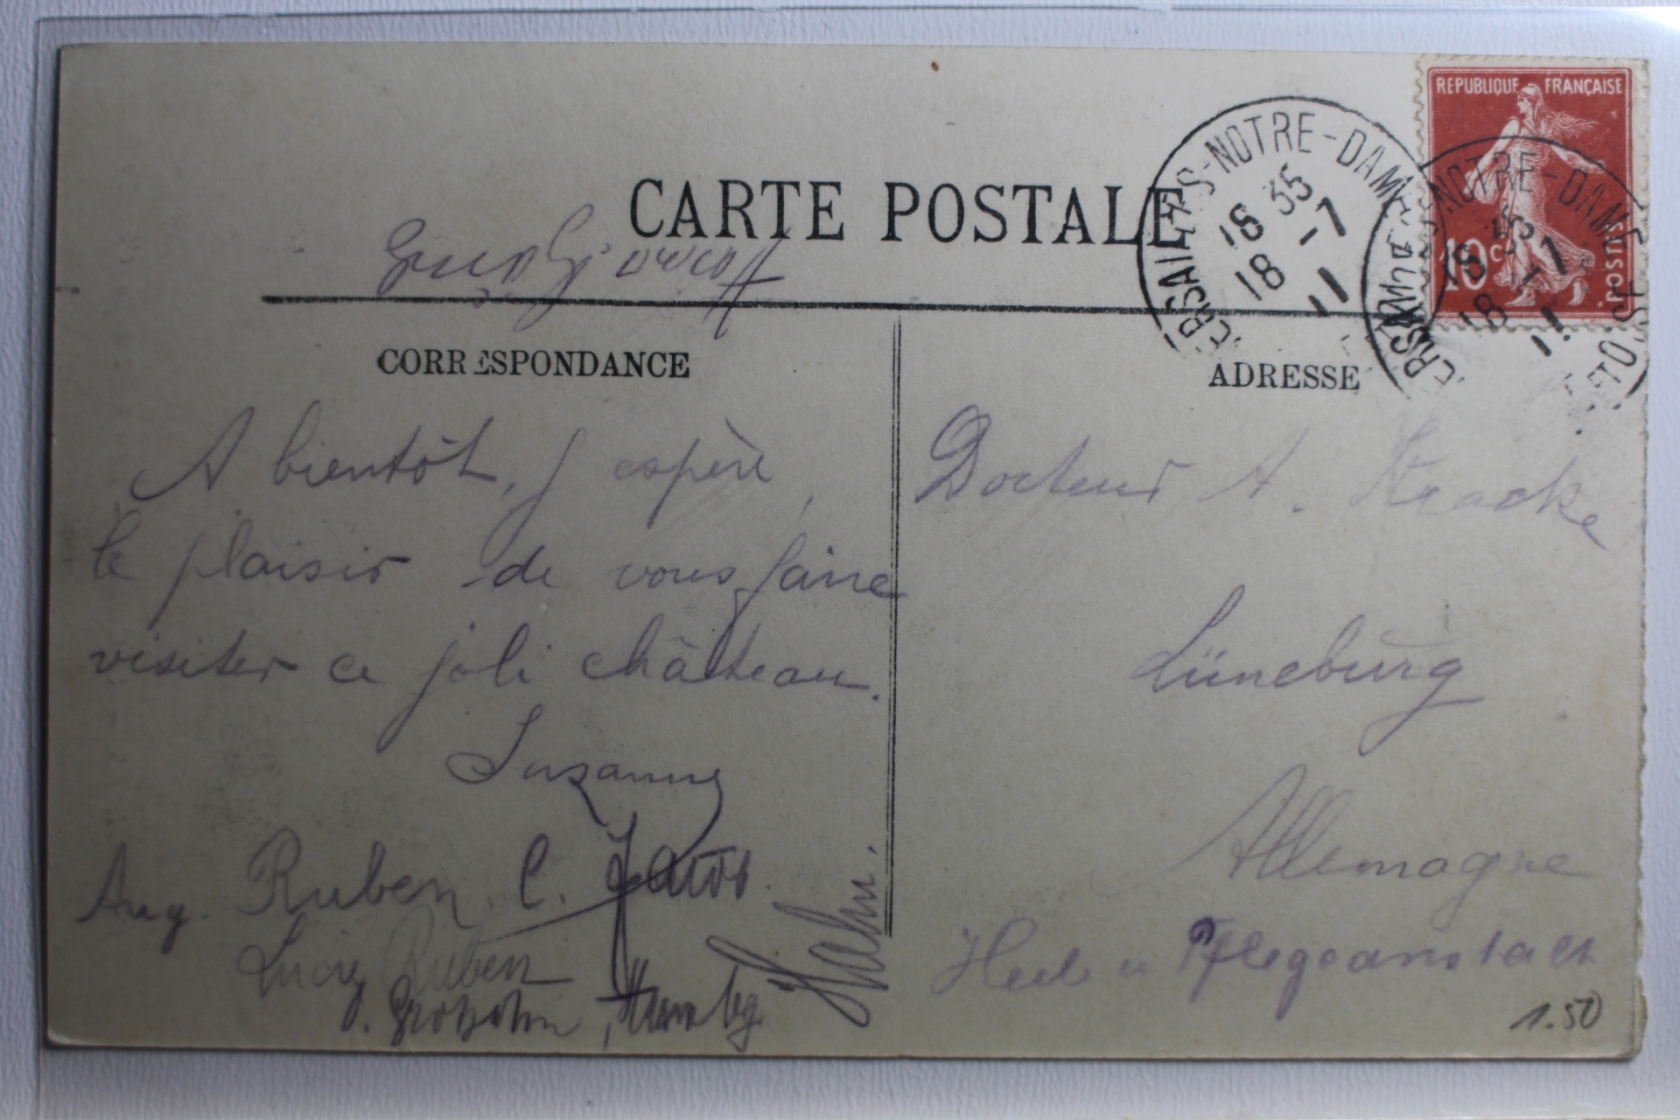 REPUBLIQUE FRANÇAISE
10 c POSTES
VERSAILLES-NOTRE-DAME
18 35
18 -7
11
CARTE POSTALE
CORRESPONDANCE
ADRESSE
A bientôt, j'espère,
le plaisir de vous faire
visiter ce joli château.
Suzanne
Aug. Ruben. C.
Lucy Ruben
Hahn.
Docteur A.
Lüneburg
Allemagne
Heil u Pflegeanstalt
1.50